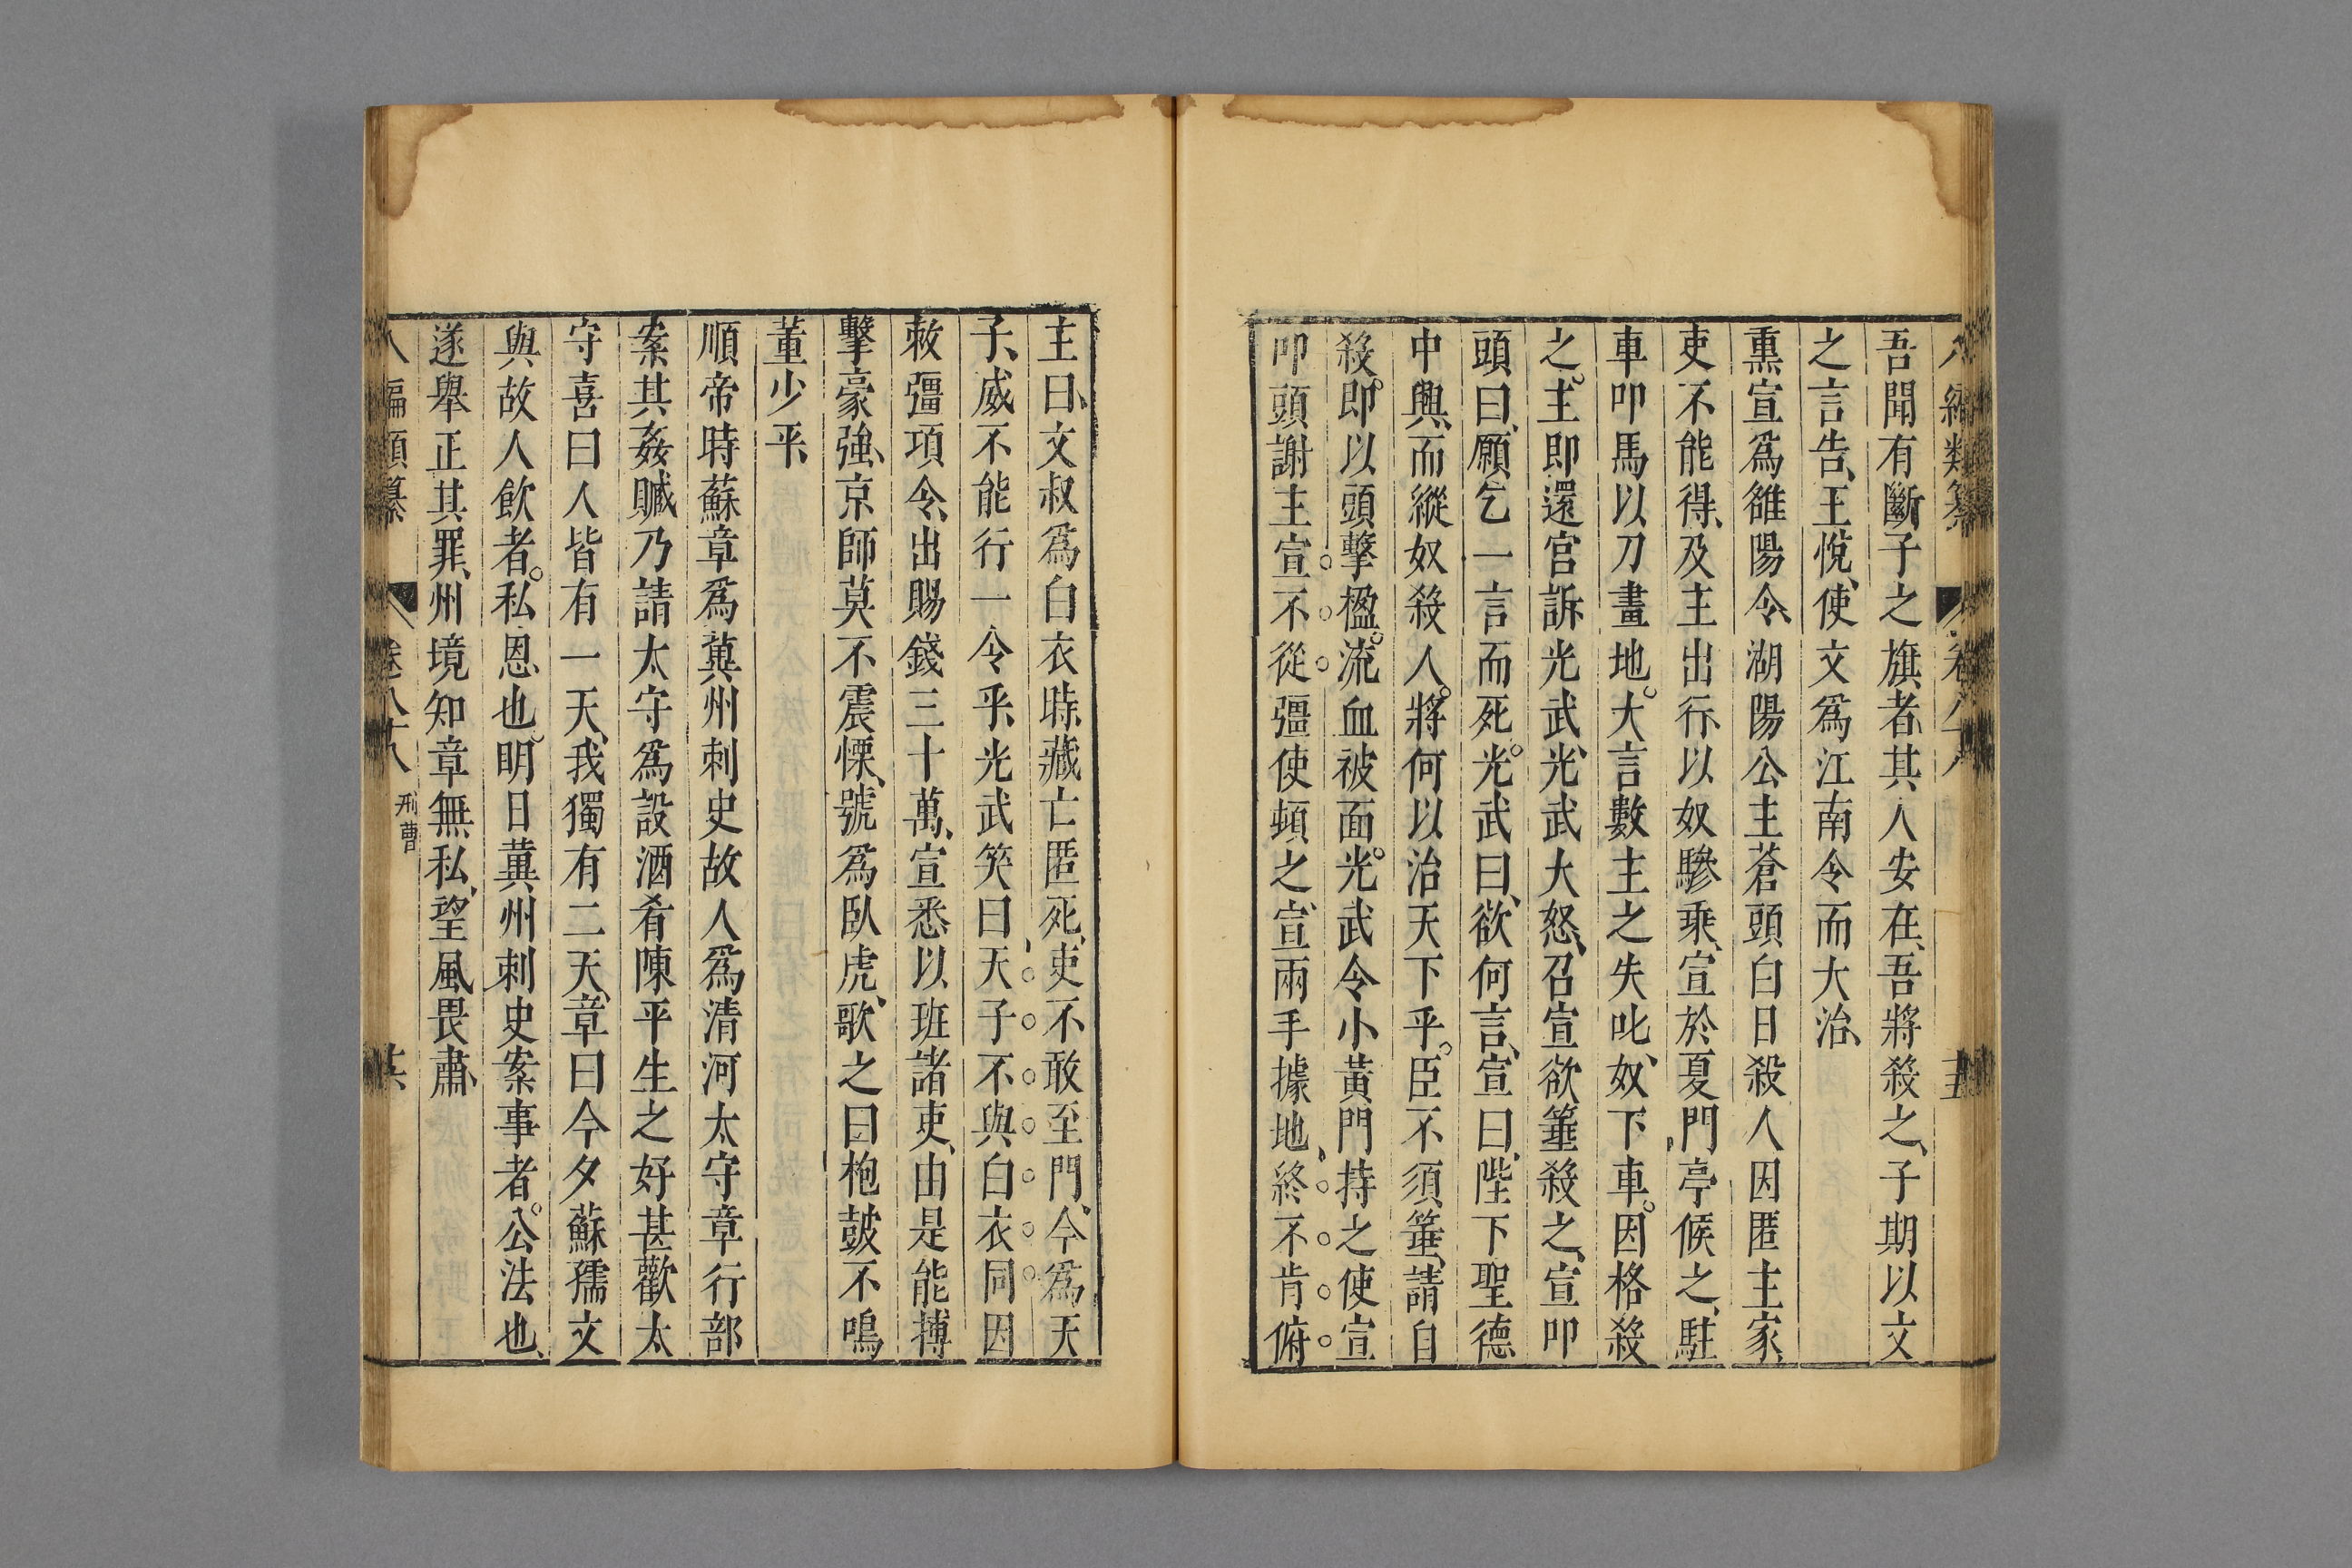 八編類纂 卷八十八
吾聞有斷子之旗者、其人安在、吾將殺之、子期以文
之言告、王悅、使文爲江南令而大治、
熏宣爲雒陽令、湖陽公主蒼頭白日殺人因匿主家、
吏不能得、及主出行、以奴驂乘、宣於夏門亭候之、駐
車叩馬以刀畫地。大言數主之失叱、奴、下車。因格殺
之。主即還宮訴光武、光武大怒、召宣欲箠殺之、宣叩
頭曰、願乞一言而死。光武曰、欲何言、宣曰、陛下聖德
中興、而縱奴殺人。將何以治天下乎。臣不須箠、請自
殺。即以頭擊楹。流血被面。光武令小黃門持之使宣
叩頭謝主宣不從彊使頓之、宣兩手據地、終不肯俯
主曰、文叔爲白衣時、藏亡匿死、吏不敢至門、今爲天
子、威不能行一令乎、光武笑曰、天子不與白衣同因
敕彊項令、出賜錢三十萬、宣悉以班諸吏、由是能搏
擊豪強、京師莫不震慄、號爲臥虎、歌之曰枹鼓不鳴
董少平、
順帝時蘇章爲冀州刺史故人爲清河太守章行部
案其姦贓乃請太守爲設酒肴陳平生之好甚歡太
守喜曰人皆有一天、我獨有二天、章曰今夕蘇孺文
與故人飲者。私恩也。明日冀州刺史案事者。公法也、
遂舉正其罪、州境知章無私、望風畏肅、
八編類纂 卷八十八 刑曹